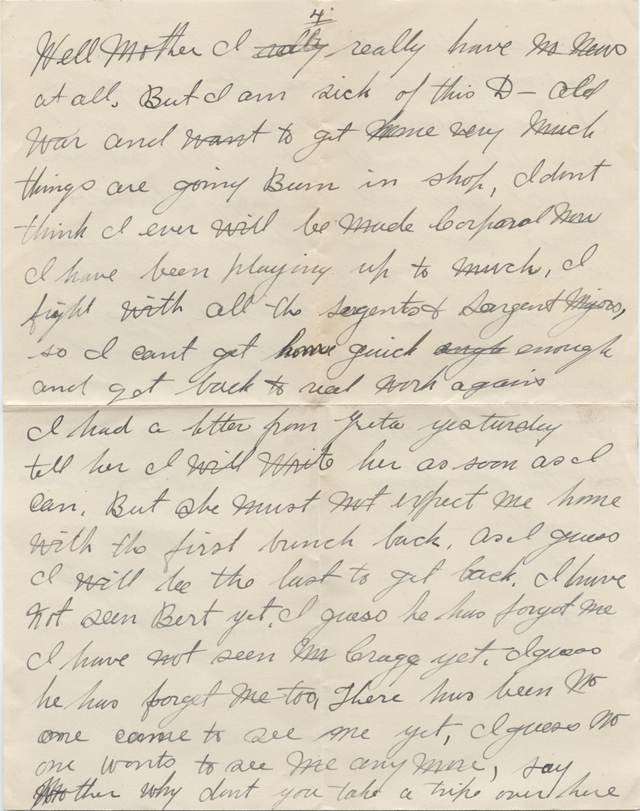 4
Well Mother I really really have no News
at all. But I am sick of this D- old
War and want to get home very Much
things are going Bum in shop, I dont
think I ever will be Made Corporal Now
I have been playing up to much, I
fight with all the sergents & Sergent Majors,
so I cant get home quick enough
and get back to real work again
I had a letter from Greta yesturday
tell her I will Write her as soon as I
can. But she Must Not expect Me home
With the first bunch back. as I guess
I will be the last to get back. I have
Not seen Bert yet, I guess he has forgot me
I have not seen Mr Cragg yet. I guess
he has forget Me too, There has been No
one came to see me yet, I guess No
one wonts to see Me any More, say
Mother why dont you take a tripe over here